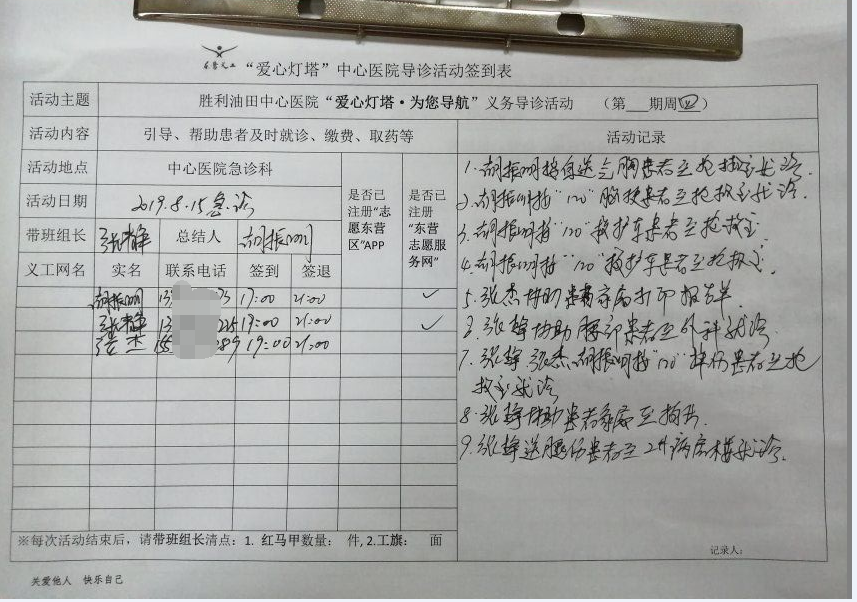 东营义工
“爱心灯塔”中心医院导诊活动签到表
活动主题 胜利油田中心医院“爱心灯塔·为您导航”义务导诊活动 （第___期周四）
活动内容 引导、帮助患者及时就诊、缴费、取药等 活动记录
活动地点 中心医院急诊科
活动日期 2019.8.15急诊
带班组长 张静 总结人 胡振明
是否已注册“志愿东营区”APP
是否已注册“东营志愿服务网”
义工网名 实名 联系电话 签到 签退
胡振明 17:00 21:00 ✓
张静 19:00 21:00 ✓
张杰 19:00 21:00
1.胡振明接自送气胸患者至抢救室就诊.
2.胡振明接“120”患者至抢救室就诊.
3.胡振明接“120”救护车患者至抢救室.
4.胡振明接“120”救护车患者至抢救室.
5.张杰协助患者家属打印报告单.
张静协助腰部患者至外科就诊
7.张静 张杰 胡振明接“120”摔伤患者至抢
救室就诊
8.张静协助患者家属至拍片.
9.张静送腿伤患者至2#病房楼就诊.
※每次活动结束后，请带班组长清点：1. 红马甲数量： 件,2.工旗： 面
记录人：
关爱他人 快乐自己